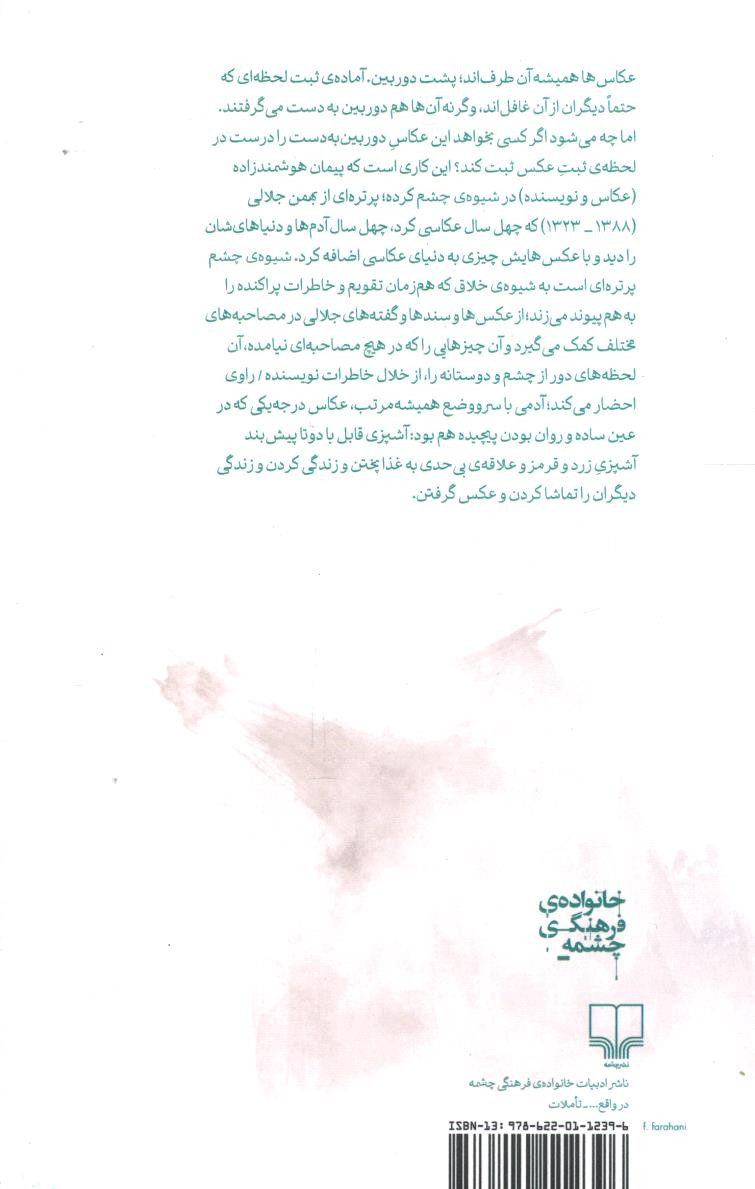 عکاس‌ها همیشه آن طرف‌اند؛ پشت دوربین. آماده‌ی ثبت لحظه‌ای که
حتماً دیگران از آن غافل‌اند، وگرنه آن‌ها هم دوربین به دست می‌گرفتند.
اما چه می‌شود اگر کسی بخواهد این عکاسِ دوربین‌به‌دست را درست در
لحظه‌ی ثبتِ عکس ثبت کند؟ این کاری است که پیمان هوشمندزاده
(عکاس و نویسنده) در شیوه‌ی چشم کرده؛ پرتره‌ای از بهمن جلالی
(۱۳۸۸ ــ ۱۳۲۳) که چهل سال عکاسی کرد، چهل سال آدم‌ها و دنیاهای‌شان
را دید و با عکس‌هایش چیزی به دنیای عکاسی اضافه کرد. شیوه‌ی چشم
پرتره‌ای است به شیوه‌ی خلاق که هم‌زمان تقویم و خاطرات پراکنده را
به هم پیوند می‌زند؛ از عکس‌ها و سندها و گفته‌های جلالی در مصاحبه‌های
مختلف کمک می‌گیرد و آن چیزهایی را که در هیچ مصاحبه‌ای نیامده، آن
لحظه‌های دور از چشم و دوستانه را، از خلال خاطرات نویسنده / راوی
احضار می‌کند؛ آدمی با سرووضع همیشه‌مرتب، عکاس درجه‌یکی که در
عین ساده و روان بودن پیچیده هم بود: آشپزی قابل با دو‌تا پیش‌بند
آشپزیِ زرد و قرمز و علاقه‌ی بی‌حدی به غذا پختن و زندگی کردن و زندگی
دیگران را تماشا کردن و عکس گرفتن.
خانواده‌ی
فرهنگی
چشمه
نشرچشمه
ناشر ادبیات خانواده‌ی فرهنگی چشمه
در واقع... ــ تأملات
ISBN-13: 978-622-01-1239-6
f. farahani